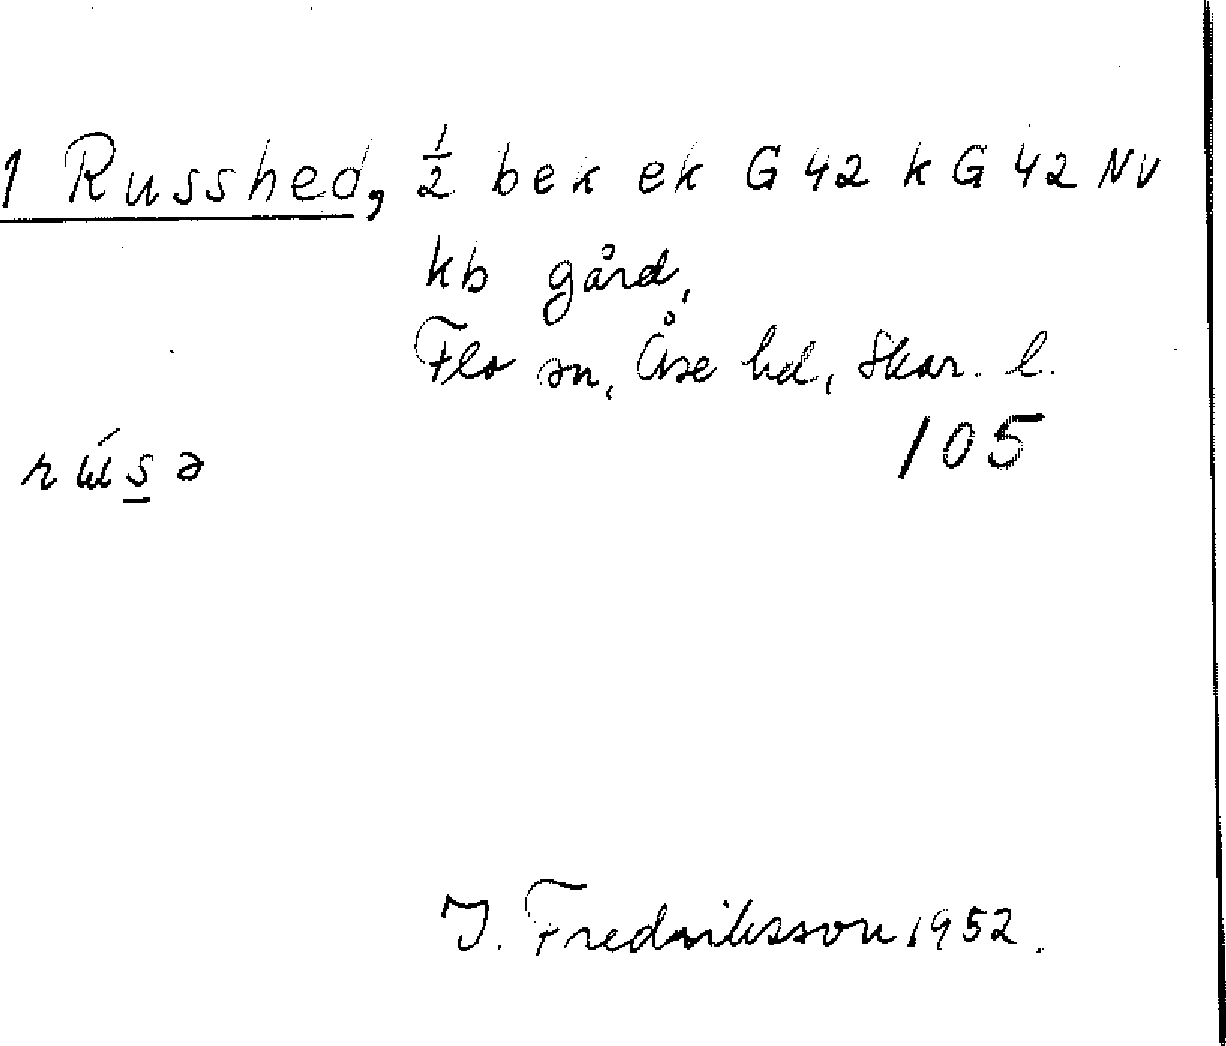 1 Russhed, ½ bek ek G 42 k G 42 NV
kb gård,
Flo sn, Åse hd, Skar. l.
105
J. Fredriksson 1952.